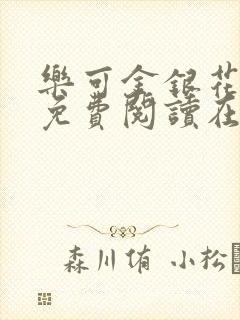 樂可金銀花
免費閱讀在
森川侑 小松